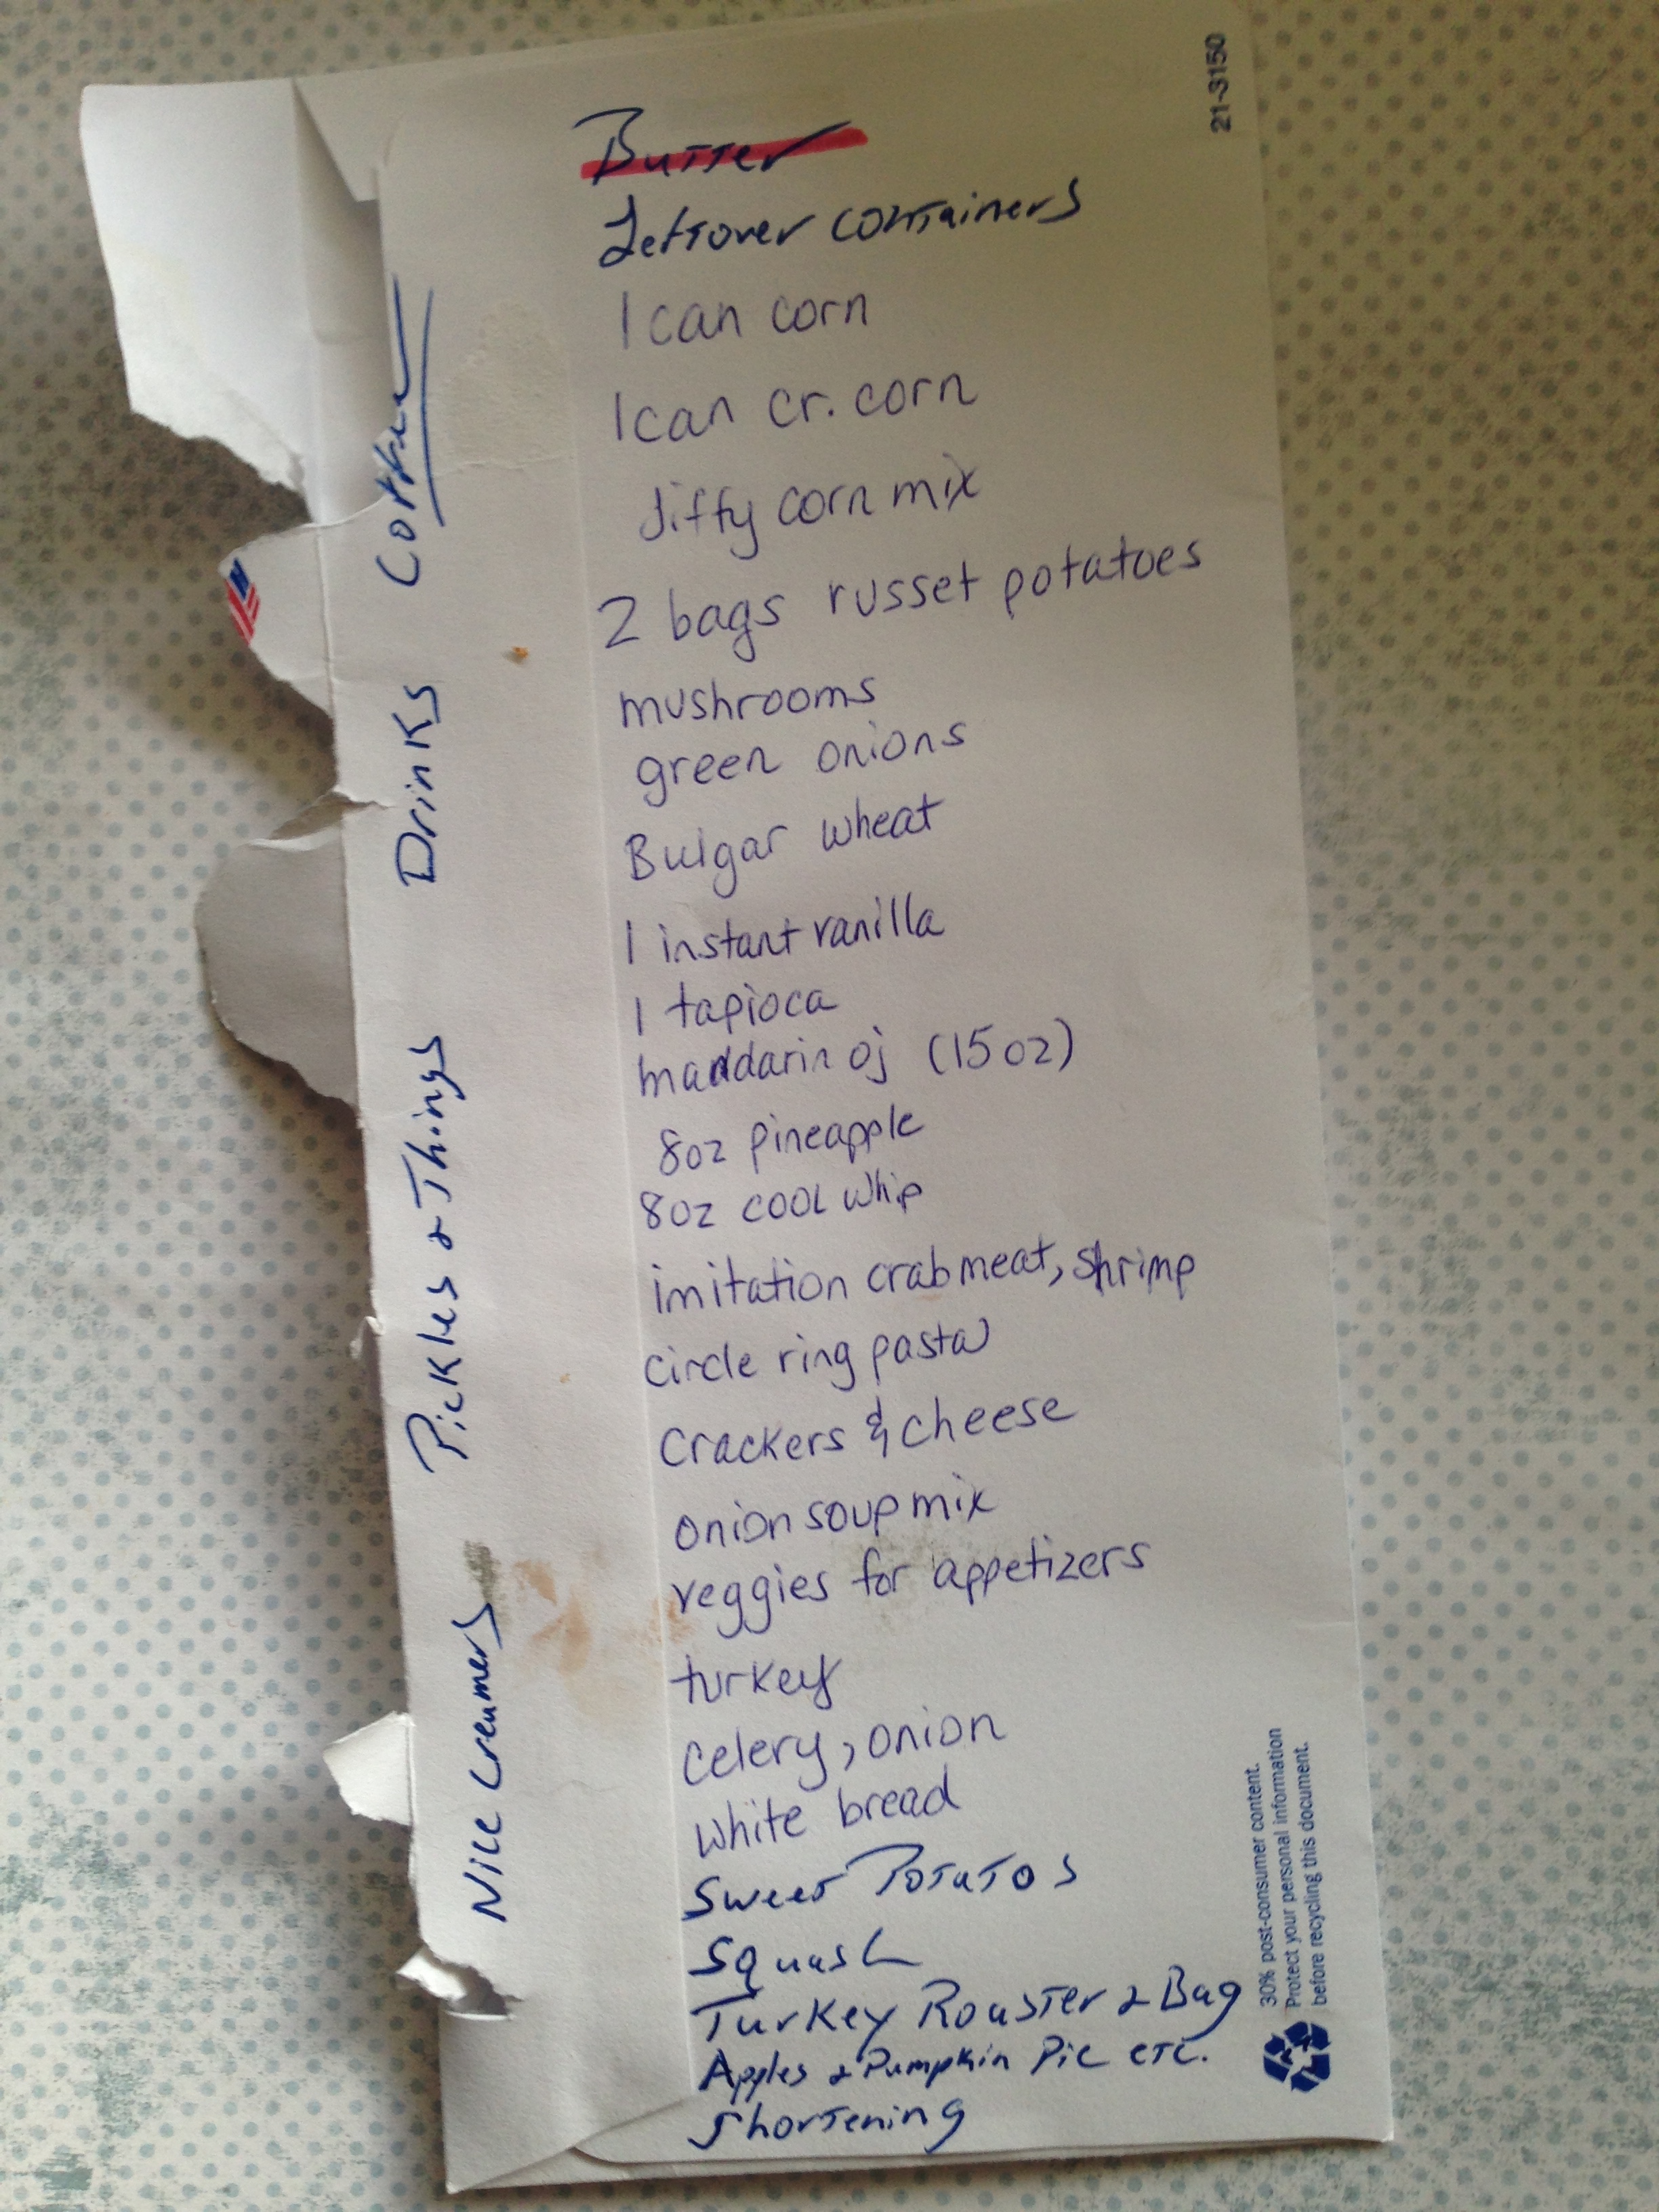 21-3150
Butter
Leftover containers
1 can corn
1 can cr. corn
Jiffy corn mix
2 bags russet potatoes
mushrooms
green onions
Bulgar wheat
1 instant vanilla
1 tapioca
mandarin oj (15 oz)
8oz pineapple
8oz cool whip
imitation crab meat, shrimp
circle ring pasta
Crackers & cheese
onion soup mix
veggies for appetizers
turkey
celery, onion
white bread
Sweet Potatos
Squash
Turkey Roaster & Bag
Apples & Pumpkin Pie etc.
Shortening
Nice Creamers
Pickles & Things
Drinks
30% post-consumer content.
Protect your personal information
before recycling this document.